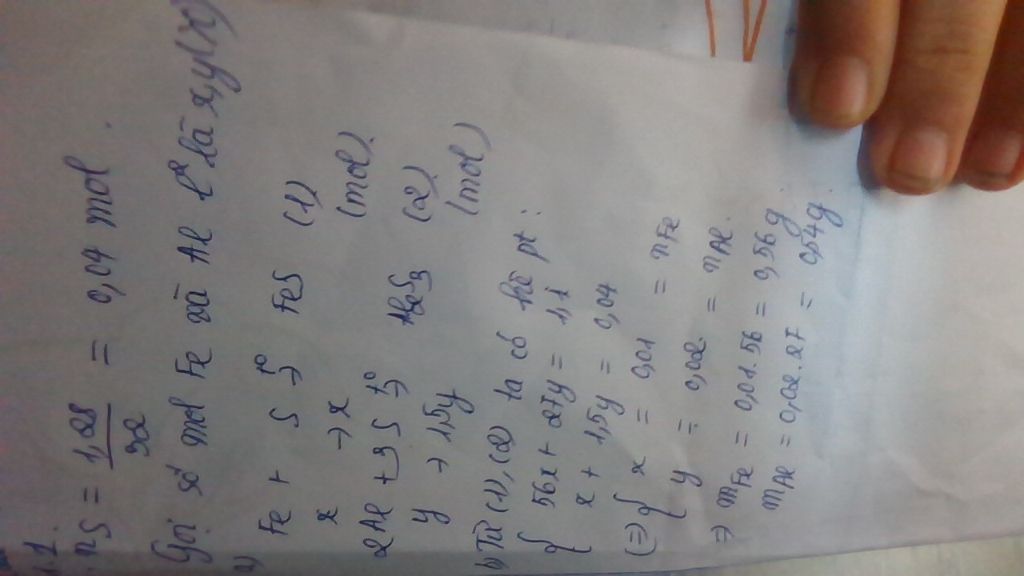 1.1.
nS = 1,28/32 = 0,04 mol.
Gọi số mol Fe và Al lần lượt là x, y (
a) Fe + S -t°-> FeS (1)
x -> x (mol)
2Al + 3S -t°-> Al2S3 (2)
y -> 1,5y (mol)
b) Từ (1), (2) ta có hệ pt:
{ 56x + 27y = 1,1
x + 1,5y = 0,04
(=) { x = 0,01 = nFe
y = 0,02 = nAl.
=> mFe = 0,01.56 = 0,56g
mAl = 0,02.27 = 0,54g